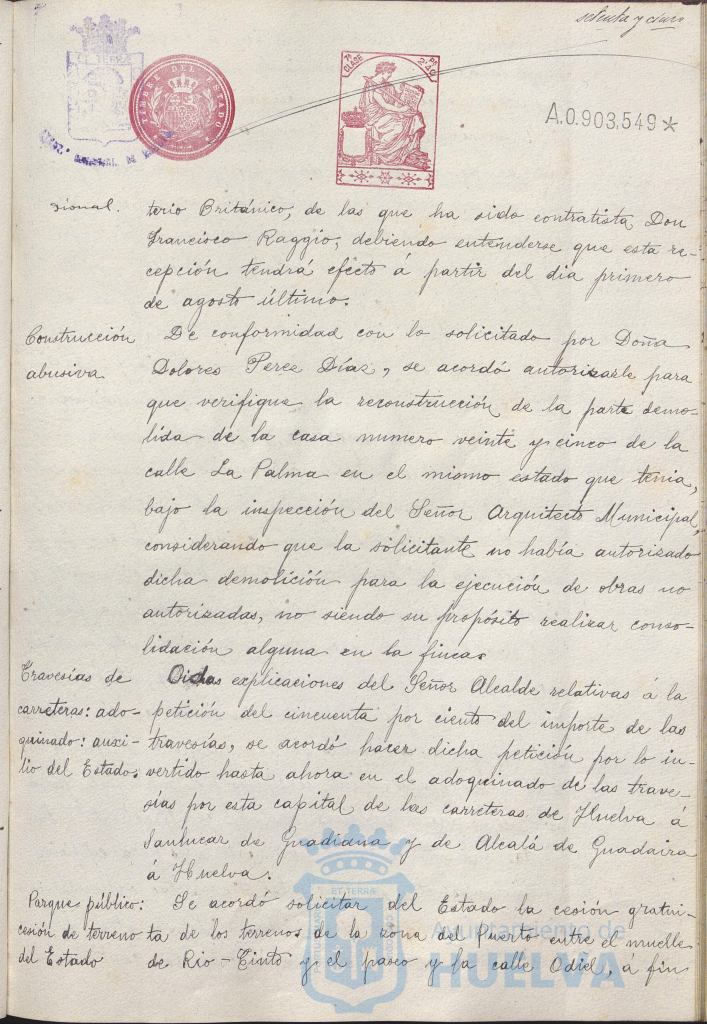 setenta y cinco
TIMBRE DEL ESTADO
7ª CLASE
PS 2'40
A.0.903,549*
sional.
terio Británico, de las que ha sido contratista Don
Francisco Raggio, debiendo entenderse que esta re-
cepción tendrá efecto á partir del dia primero
de agosto último.
Construcción
abusiva
De conformidad con lo solicitado por Doña
Dolores Perez Díaz, se acordó autorizarle para
que verifique la reconstrucción de la parte demo-
lida de la casa numero veinte y cinco de la
calle La Palma en el mismo estado que tenia,
bajo la inspección del Señor Arquitecto Municipal,
considerando que la solicitante no había autorizado
dicha demolición para la ejecución de obras no
autorizadas, no siendo su propósito realizar conso-
lidación alguna en la finca.
Travesías de
carreteras: ado-
quinado: auxi-
lio del Estado.
Oidas explicaciones del Señor Alcalde relativas á la
petición del cincuenta por ciento del importe de las
travesías, se acordó hacer dicha petición por lo in-
vertido hasta ahora en el adoquinado de las trave-
sías por esta capital de las carreteras de Huelva á
Sanlucar de Guadiana y de Alcalá de Guadaira
á Huelva.
Parque público:
cesión de terreno
del Estado
Se acordó solicitar del Estado la cesión gratui-
ta de los terrenos de la zona del Puerto entre el muelle
de Rio-Tinto y el paseo y la calle Odiel, á fin
Ayuntamiento de
HUELVA